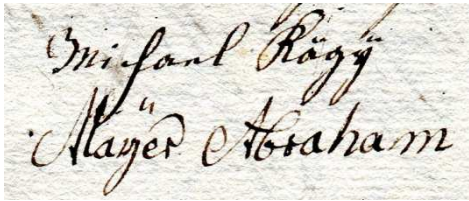 Michael Kägÿ
Maÿer Abraham